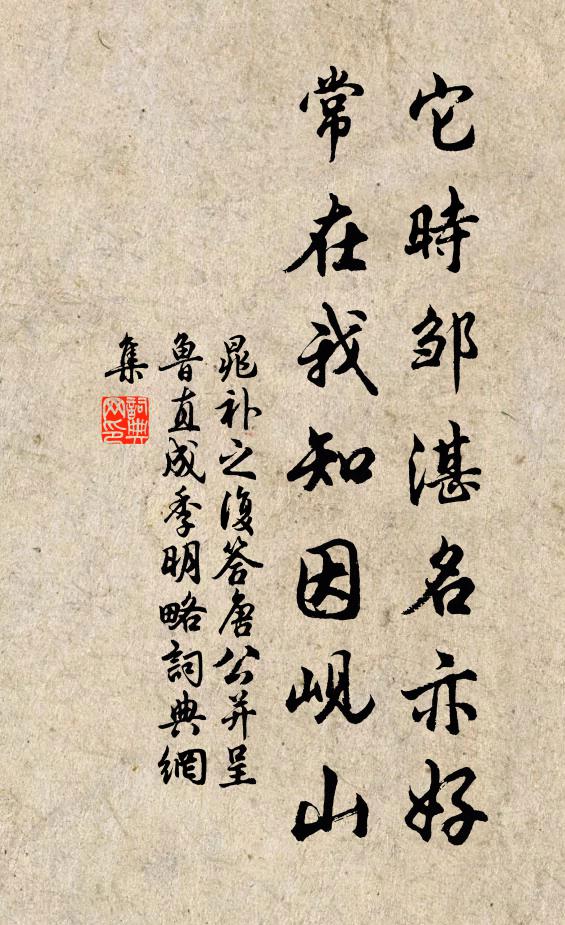 它時邹湛名亦好
常在我知因峴山
晁补之復答唐公并呈
魯直成季明略詞典網
集
詞典
网印